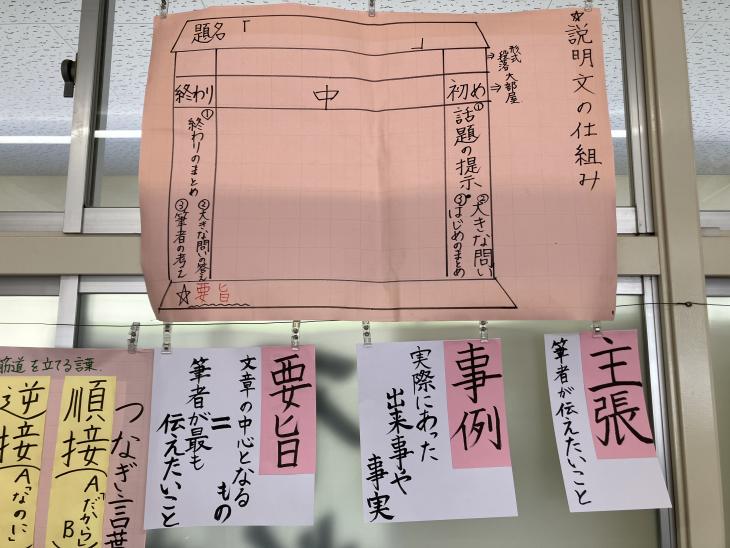 ☆説明文の仕組み
題名「　　　」
⇒形式段落
⇒大部屋
初め
中
終わり
①話題の提示
②大きな問い
③はじめのまとめ
①終わりのまとめ
②大きな問いの答え
③筆者の考え
☆要旨
主張
筆者が伝えたいこと
事例
実際にあった
出来事や
事実
要旨
文章の中心となる
もの
=
筆者が最も
伝えたいこと
筋道を立てる言葉
つなぎ言葉
順接
(A「だから」B
逆接
(A「なのに」